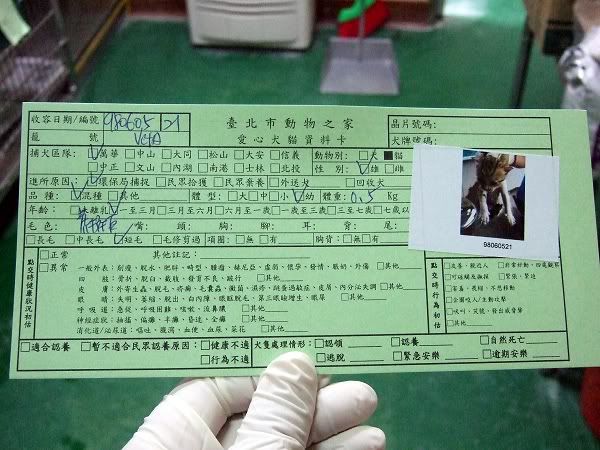 收容日期/編號 980605 21 臺北市動物之家 晶片號碼:
籠 號 愛心犬貓資料卡 犬牌號碼:
捕犬區隊: ☑萬華 □中山 □大同 □松山 □大安 □信義 動物別: □犬 ■貓
□中正 □文山 □內湖 □南港 □士林 □北投 性別: ☑雄 □雌
進所原因: ☑環保局捕捉 □民眾拾獲 □民眾棄養 □外送犬 □回收犬
品種: ☑混種 □其他 體型: □大 □中 □小 ☑幼 體重: 0.5 Kg
年齡: □未離乳 ☑一至三月 □三月至六月 □六月至一歲 □一歲至三歲 □三歲至七歲 □七歲以
毛色: 背: 頭: 胸: 腳: 耳: 背: 尾:
□長毛 □中長毛 ☑短毛 □毛修剪過 項圈: □無 □有 胸背: □無 □有
98060521
點交時健康狀況初估
□正常 其他註記:
□異常 一般外表: 削瘦、脫水、肥胖、畸型、腫瘤、赫尼亞、虛弱、懷孕、發情、眼奶、外傷 □其他
四 肢: 骨折、脫臼、截肢、發育不良、跛行 □其他
皮 膚: 外寄生蟲、脫毛、疥癬、毛囊蟲、黴菌、濕疹、跳蚤過敏症、皮屑、內分泌失調 □其他
眼 睛: 失明、萎縮、脫出、白內障、眼瞼脫毛、第三眼瞼增生、眼屎 □其他
呼吸道: 急促、呼吸困難、咳嗽、流鼻膿 □其他
神經症狀: 抽搐、偏癱、半癱、昏迷、全癱 □其他
消化道/泌尿道: 嘔吐、腹瀉、血便、血尿、菜花 □其他
點交時行為初估
□友善、親近人 □非常好動、四處觀察
□可碰觸及撫摸 □緊張、緊迫
□害羞、畏縮、不想移動
□企圖咬人/主動攻擊
□吠叫、哭號、發出威脅聲
□其他
□適合認養 □暫不適合民眾認養原因: □健康不適 犬隻處理情形: □認領 □認養 □自然死亡
□行為不適 □逃脫 □緊急安樂 □逾期安樂